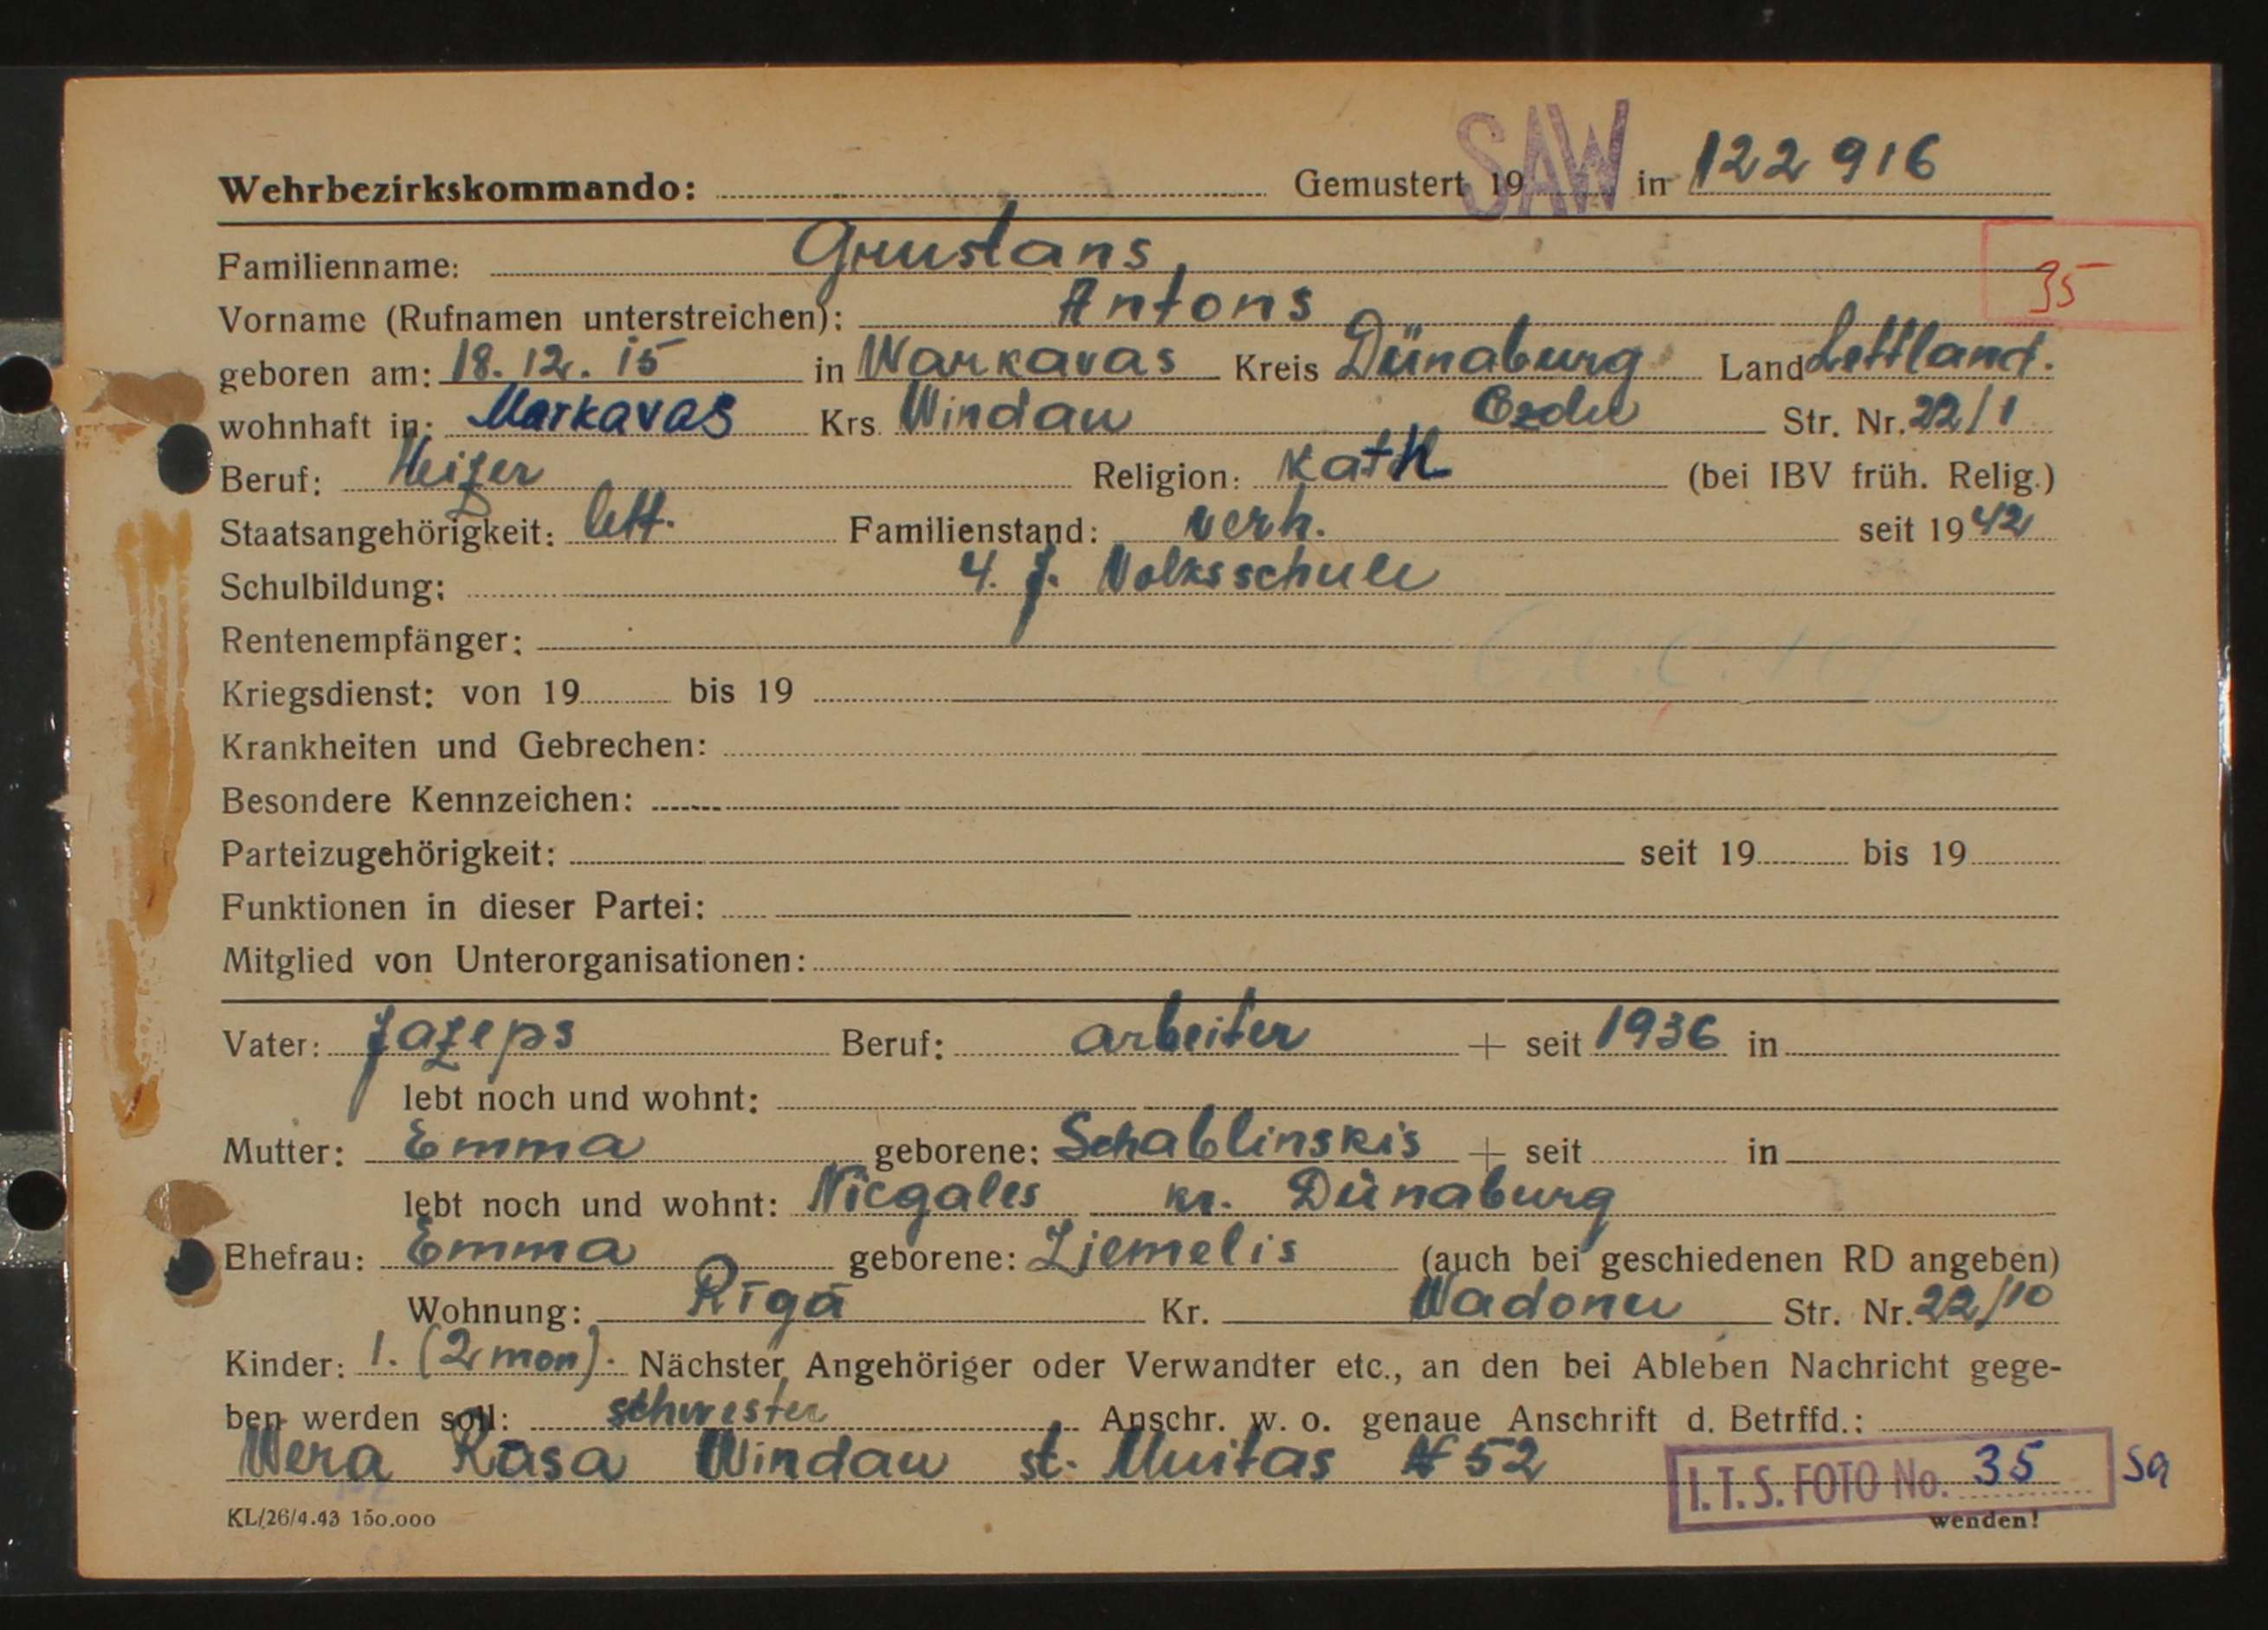 Wehrbezirkskommando: Gemustert 19 SAW in 122 916
Familienname: Grustans
35
Vorname (Rufnamen unterstreichen): Antons
geboren am: 18. 12. 15 in Warkavas Kreis Dünaburg Land Lettland.
wohnhaft in: Markavas Krs. Windau Str. Nr. 22/1
Beruf: Heizer Religion: Kath (bei IBV früh. Relig.)
Staatsangehörigkeit: lett. Familienstand: verh. seit 1942
Schulbildung: 4. j. Volksschule
Rentenempfänger:
Kriegsdienst: von 19 bis 19
Krankheiten und Gebrechen:
Besondere Kennzeichen:
Parteizugehörigkeit: seit 19 bis 19
Funktionen in dieser Partei:
Mitglied von Unterorganisationen:
Vater: Jazeps Beruf: arbeiter + seit 1936 in
lebt noch und wohnt:
Mutter: Emma geborene: Schablinskis + seit in
lebt noch und wohnt: Nicgales kr. Dünaburg
Ehefrau: Emma geborene: Ziemelis (auch bei geschiedenen RD angeben)
Wohnung: Rīgā Kr. Wadonu Str. Nr. 22/10
Kinder: 1. (2 mon). Nächster Angehöriger oder Verwandter etc., an den bei Ableben Nachricht gege-
ben werden soll: schwester Anschr. w. o. genaue Anschrift d. Betrffd.:
Wera Rasa Windau st. Muitas № 52
I.T.S. FOTO No. 35 Sa
KL/26/4.43 150.000 wenden!